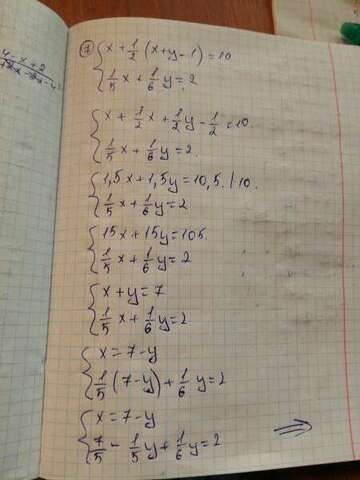 ⑦ { x + 1/2 (x + y - 1) = 10
1/5 x + 1/6 y = 2
{ x + 1/2 x + 1/2 y - 1/2 = 10
1/5 x + 1/6 y = 2
{ 1,5x + 1,5y = 10,5. | 10.
1/5 x + 1/6 y = 2
{ 15x + 15y = 105
1/5 x + 1/6 y = 2
{ x + y = 7
1/5 x + 1/6 y = 2
{ x = 7 - y
1/5 (7 - y) + 1/6 y = 2
{ x = 7 - y
7/5 - 1/5 y + 1/6 y = 2 ⇒